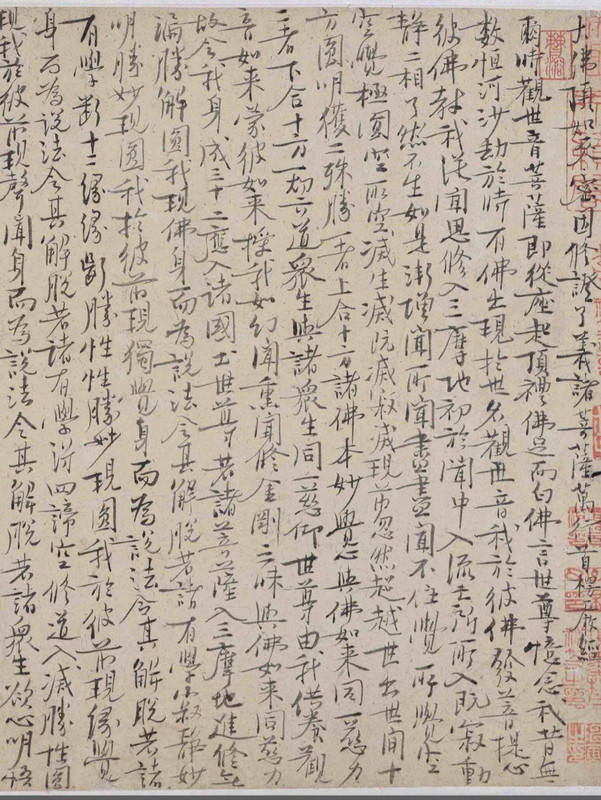 大佛頂如來密因修證了義諸菩薩萬行首楞嚴經
爾時觀世音菩薩即從座起頂禮佛足而白佛言世尊憶念我昔無
數恒河沙劫於時有佛出現於世名觀世音我於彼佛發菩提心
彼佛教我從聞思修入三摩地初於聞中入流亡所所入既寂動
靜二相了然不生如是漸增聞所聞盡盡聞不住覺所覺空
空覺極圓空所空滅生滅既滅寂滅現前忽然超越世出世間十
方圓明獲二殊勝一者上合十方諸佛本妙覺心與佛如來同一慈力
二者下合十方一切六道眾生與諸眾生同一悲仰世尊由我供養觀
音如來蒙彼如來授我如幻聞熏聞修金剛三昧與佛如來同慈力
故令我身成三十二應入諸國土世尊若諸菩薩入三摩地進修無
漏勝解圓我現佛身而為說法令其解脫若諸有學寂靜妙
明勝妙現圓我於彼前現獨覺身而為說法令其解脫若諸
有學斷十二緣緣斷勝性性勝妙現圓我於彼前現緣覺
身而為說法令其解脫若諸有學得四諦空修道入滅勝性圓
現我於彼前現聲聞身而為說法令其解脫若諸眾生欲心明悟